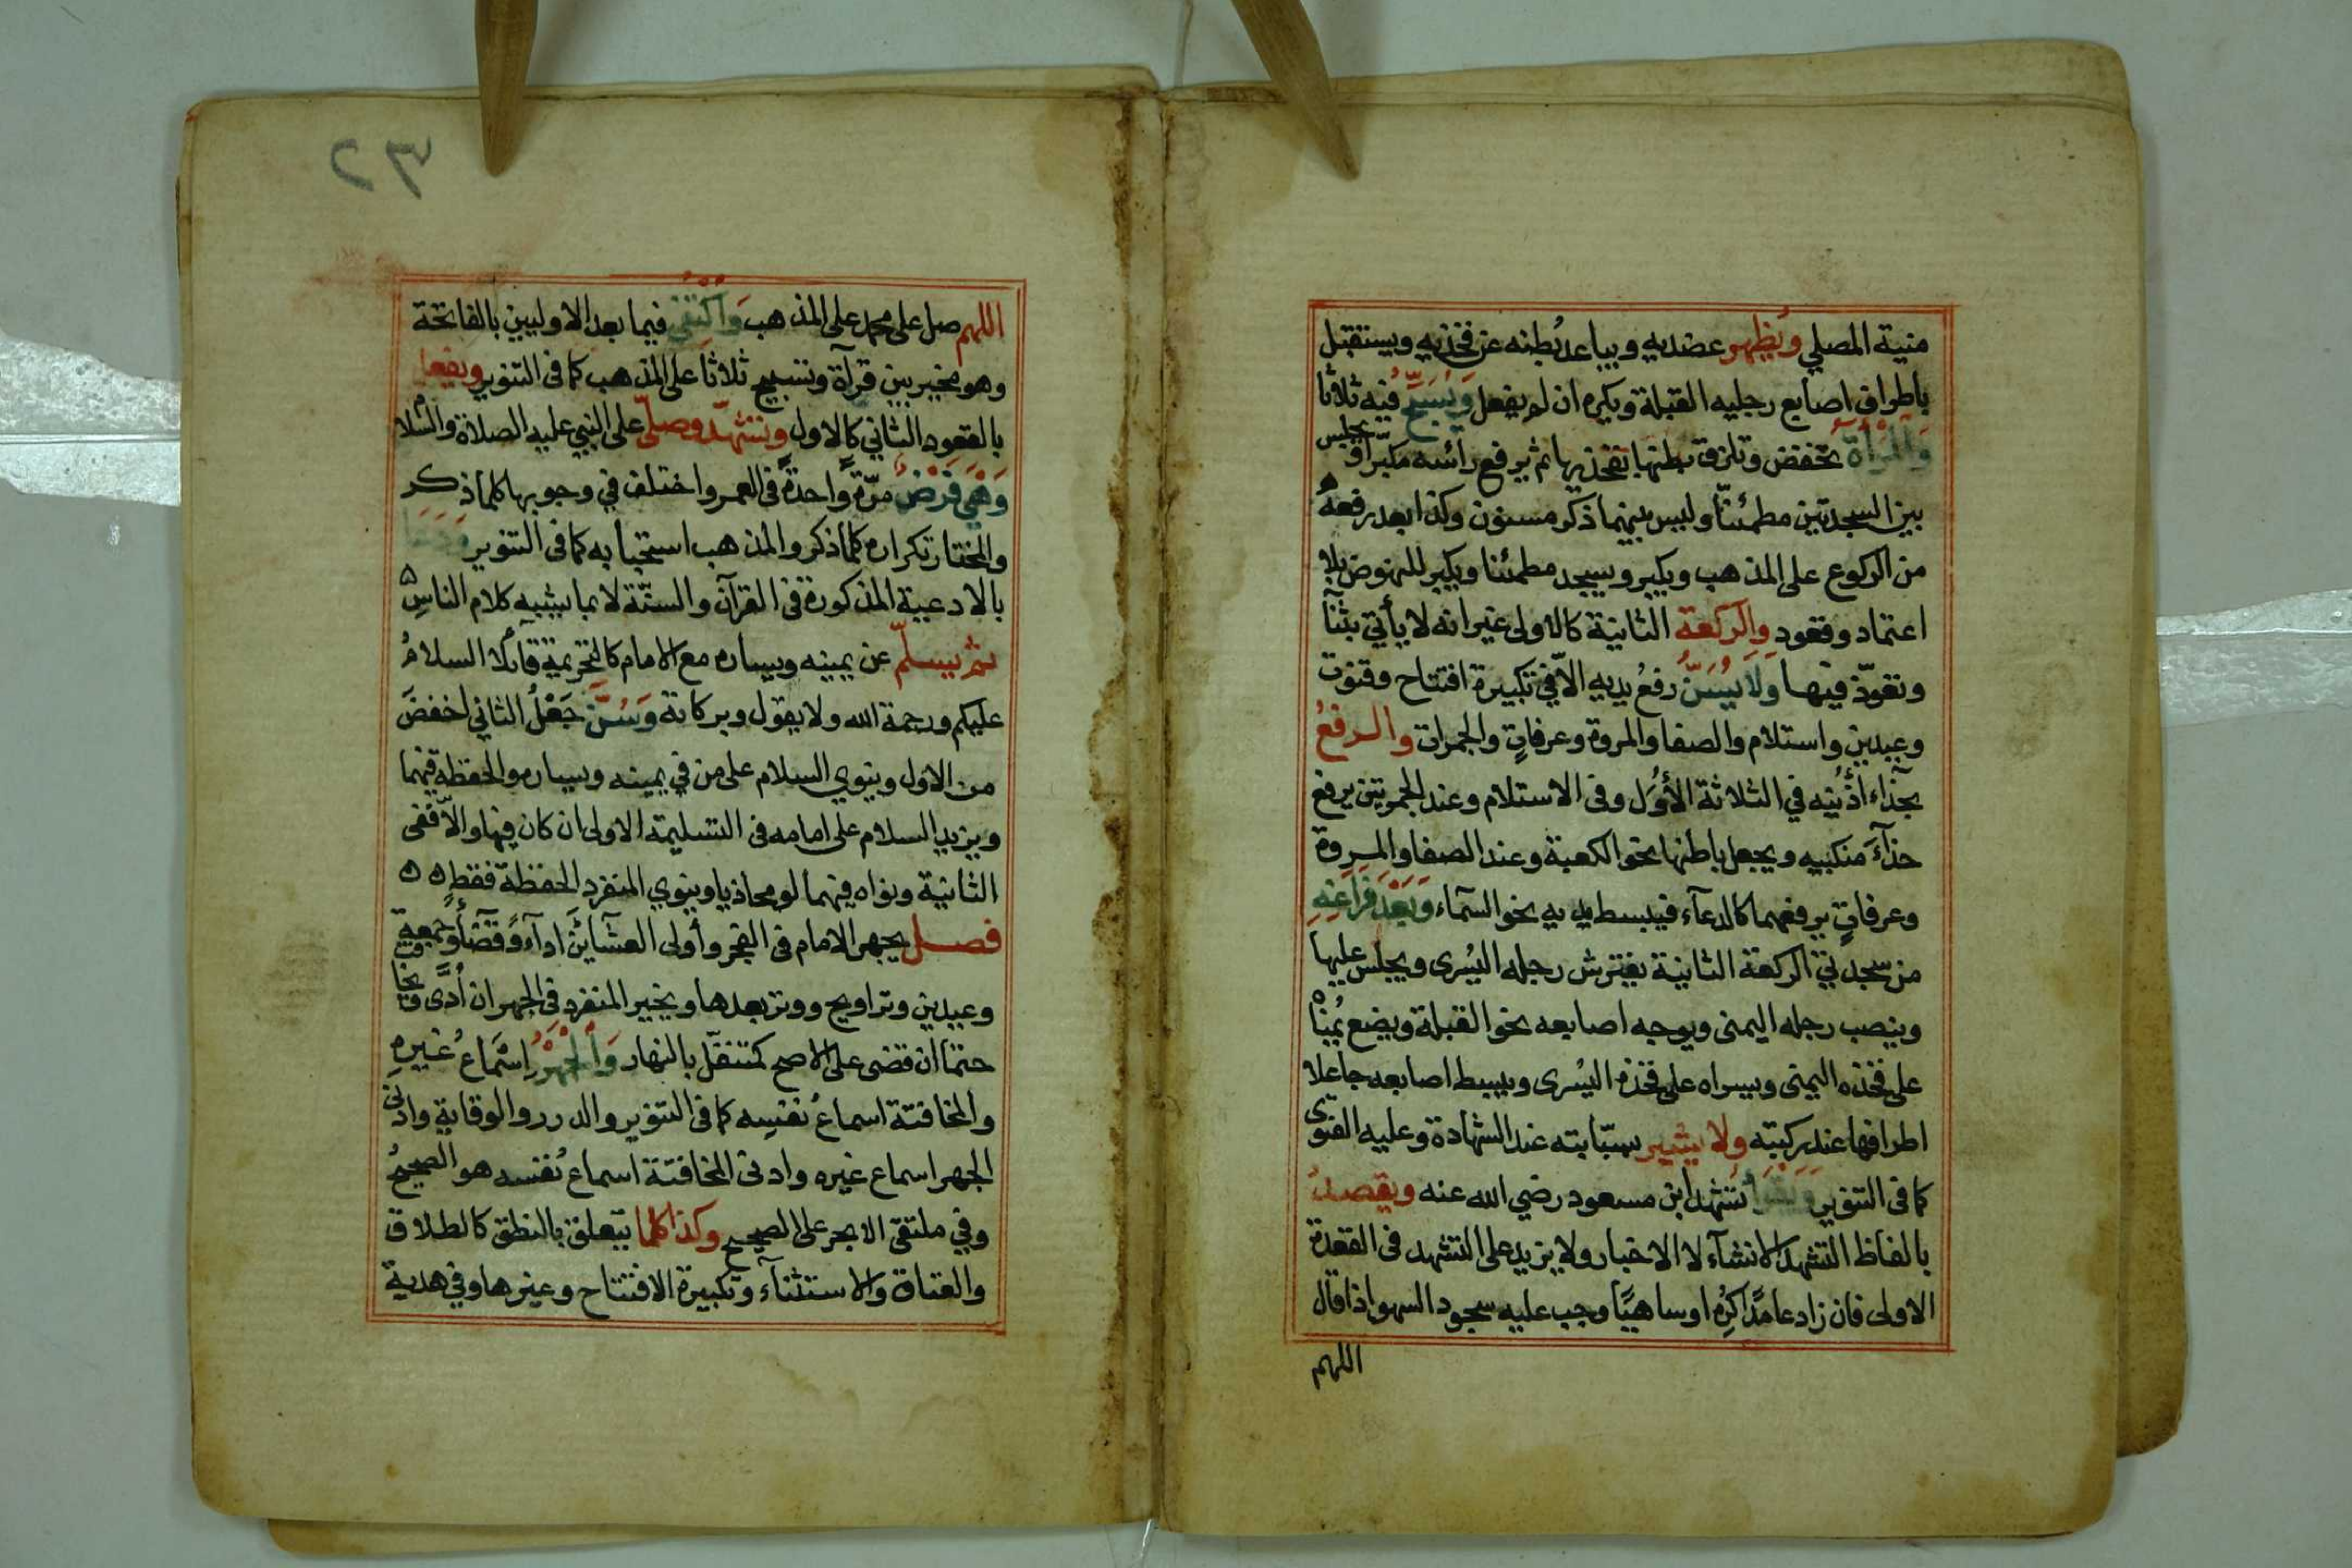 منية المصلي ويظهر عضديه ويباعد بطنه عن فخذيه ويستقبل
باطراف اصابع رجليه القبلة ويكره ان لم يفعل وَيُسَبِّحُ فيه ثلاثا
وَالْمَرْأَةُ تخفض وتلزق بطنها بفخذيها ثم يرفع رأسه مكبّرا ويجلس
بين السجدتين مطمئنّا وليس بينهما ذكر مسنون وكذا بعد رفعهُ
من الركوع على المذهب ويكبر ويسجد مطمئنا ويكبر للنهوض بلا
اعتماد وقعود والركعة الثانية كالاولى غير انه لا يأتي بثنآ
وتعوّذ فيها وَلَا يُسَنُّ رفعُ يديه الّا في تكبيرة افتتاح وقنوت
وعيدين واستلام والصفا والمروة وعرفاتٍ والجمرات والرفعُ
بحذاء اذُنيه في الثلاثة الأُوَل وفى الاستلام وعند الجمرتين يرفع
حذآءَ منكبيه ويجعل باطنها نحو الكعبة وعند الصفا والمروة
وعرفاتٍ يرفعهما كالدعآء فيبسط يديه نحو السمآء وَبَعْدَ فَرَاغِهِ
من سجدتي الركعة الثانية يفترش رجله اليُسرى ويجلس عليها
وينصب رجله اليمنى ويوجه اصابعه نحو القبلة ويضع يُمنْاه
على فخذه اليمنى ويسراه على فخذه اليُسرى ويبسط اصابعه جاعلا
اطرافها عند ركبته ولا يشير بسبّابته عند الشهادة وعليه الفتوى
كما فى التنوير وَيَقْرَأُ تشهد ابن مسعود رضي الله عنه ويقصدُ
بالفاظ التشهد الانشآء لا الاخبار ولا يزيد على التشهد فى القعدة
الاولى فان زاد عامدًا كرُه او ساهيًا وجب عليه سجود السهو اذا قال
اللهم
٣٢
اللهم صل على محمد على المذهب وَاكْتَفِي فيما بعد الاوليين بالفاتحة
وهو مخير بين قرآة وتسبيح ثلاثًا على المذهب كما فى التنوير ويفعل
بالقعود الثاني كالاول وتشهّد وصلّى على النبي عليه الصلاة والسّلام
وَهْيَ فَرْضٌ مرّةً واحدةً فى العمر واختلف في وجوبها كلما ذكر
والمختار تكراره كلما ذكر والمذهب استحبابه كما فى التنوير وَدَعَا
بالادعية المذكورة فى القرآن والسنّة لا بما يشبه كلام الناسِ
ثم يسلّم عن يمينه ويساره مع الامام كالتحريمة قآئلا السلامُ
عليكم ورحمة الله ولا يقول وبركاته وَسُنَّ جَعْلُ الثاني اخفضَ
من الاول وينوي السلام على من في يمينه ويساره والحفظة فيهما
ويزيد السلام على امامه فى التسليمة الاولى ان كان فيها والّا ففى
الثانية ونواه فيهما لو محاذيا وينوي المنفرد الحفظة فقط
فصل يجهر الامام فى الفجر وأولى العشآئين ادآءً وقضآءً وجمعةٍ
وعيدين وتراويح ووتر بعدها ويخير المنفرد فى الجهر ان أدّى ويخافت
حتما ان قضى على الاصح كمتنفّل بالنهار وَالْجَهْرُ اِسْمَاعُ غَيرهِ
والمخافتة اسماعُ نفسِه كما فى التنوير والدرر والوقاية وادنى
الجهر اسماع غيره وادنى المخافتة اسماعُ نفسه هو الصحيحُ
وفي ملتقى الابحر على الصحيح وكذا كلما يتعلق بالنطق كالطلاق
والعتاق والاستثنآء وتكبيرة الافتتاح وغيرها وفي هدية